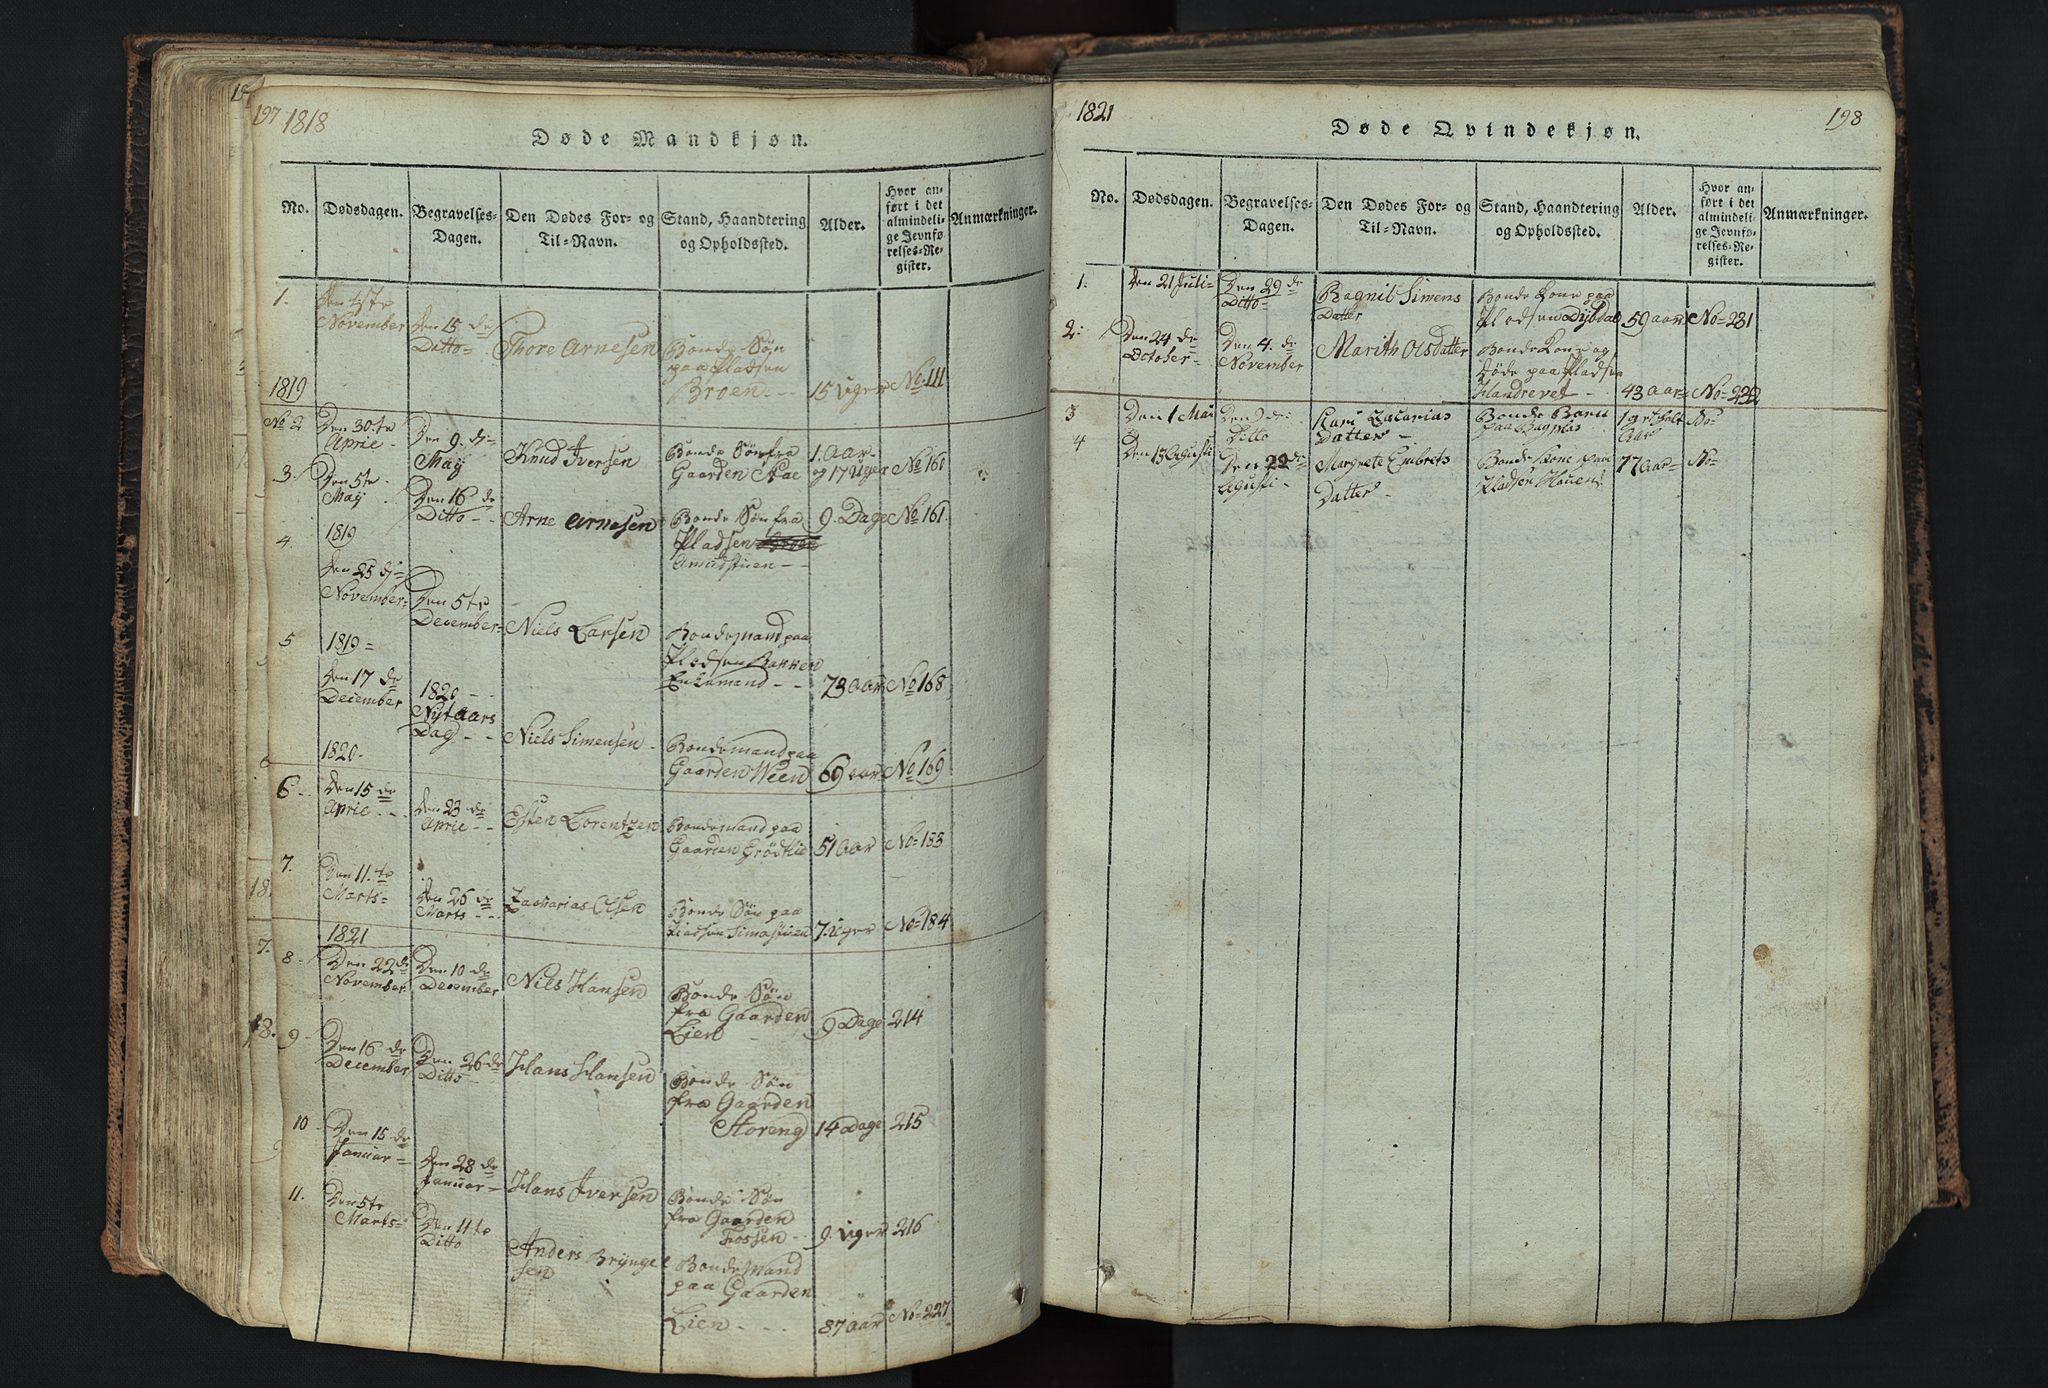 197 1818
Døde Mandkjøn.
No.
Dødsdagen.
Begravelses-
Dagen.
Den Dødes For- og
Til-Navn.
Stand, Haandtering
og Opholdssted.
Alder.
Hvor an-
ført i det
almindeli-
ge Jevnfø-
relses-Re-
gister.
Anmærkninger.
1.
November
Den 15 de
Ditto-
Thore Arnesen
Bonde Søn
paa Pladsen
Broen
15 Uger
No. 111
1819
No 2
Den 30.te
Den 9. d
May
Knud Iversen
Bonde Søn fra
Gaarden
1. Aar
og 17 Uger
No 160
3.
Den 5te
May
Den 16 de
Ditto
Arne Arnesen
Bonde Søn fra
Pladsen
Amudstuen
9. Dage
No 161
4.
1819
Den 25 d
November-
Den 5te
December-
Niels Larsen
Bondemand paa
Pladsen Bakken
Enkemand
73 aar
No 168
5
1819-
Den 17 de
December
1820
Nytaars
Dag
Niels Simensen
Bondemand paa
GaardenWeen
69 aar
No 169
1820.
6
Den 15 de
Den 23 de
Esten Lorentzen
Bondemand paa
Gaarden
51 Aar
No 183
7.
Den 11.te
Marts-
Den 26 de
Marts
Zacharias Olsen
Bonde Søn paa
Pladsen Simastuen
7. Uger
No 184
1821
8
Den 22 d
November
Den 10 de
December
Nils Hansen
Bonde Søn
fra Gaarden
Lien
9 Dage
214
9
Den 16 de
December
Den 26 de
Ditto
Hans Hansen
Bonde Søn
fra Gaarden
Storeng
14 Dage
215
10
Den 15 de
Januar
Den 28 de
Januar
Hans Iversen
Bonde Søn
fra Gaarden
Fossen
9. Uger
216
11.
Den 5te
Marts-
Den 11.te
Ditto
Anders Brÿngel
sen
Bondemand
paa Gaarden
Lien
87 aar
No-227
1821
198
Døde Qvindekjøn.
No.
Dødsdagen.
Begravelses-
Dagen.
Den Dødes For- og
Til-Navn.
Stand, Haandtering
og Opholdssted.
Alder.
Hvor an-
ført i det
almindeli-
ge Jevnfø-
relses-Re-
gister.
Anmærkninger.
1.
Den 21 Juli
Den 29 de
Ditto-
Ragnil Simens
Datter
Bonde Kone paa
Pladsen Dybdal
59 aar
No-231
2
Den 24 de
October-
Den 4. de
November
Marith Olsdatter
Bonde Kone og
døde paa Pladsen
Handrevet
43 aar
No-232
3
Den 1 Mai
Den 9 de
Ditto
Kari Zacarias
Datter
Bonde Barn
paa
Aar
No-
4
Den 13 Agusti
Den 22 de
Agusti
Margrete Embrets
Datter
Bonde Kone paa
Pladsen Hauen
77 Aar
No-